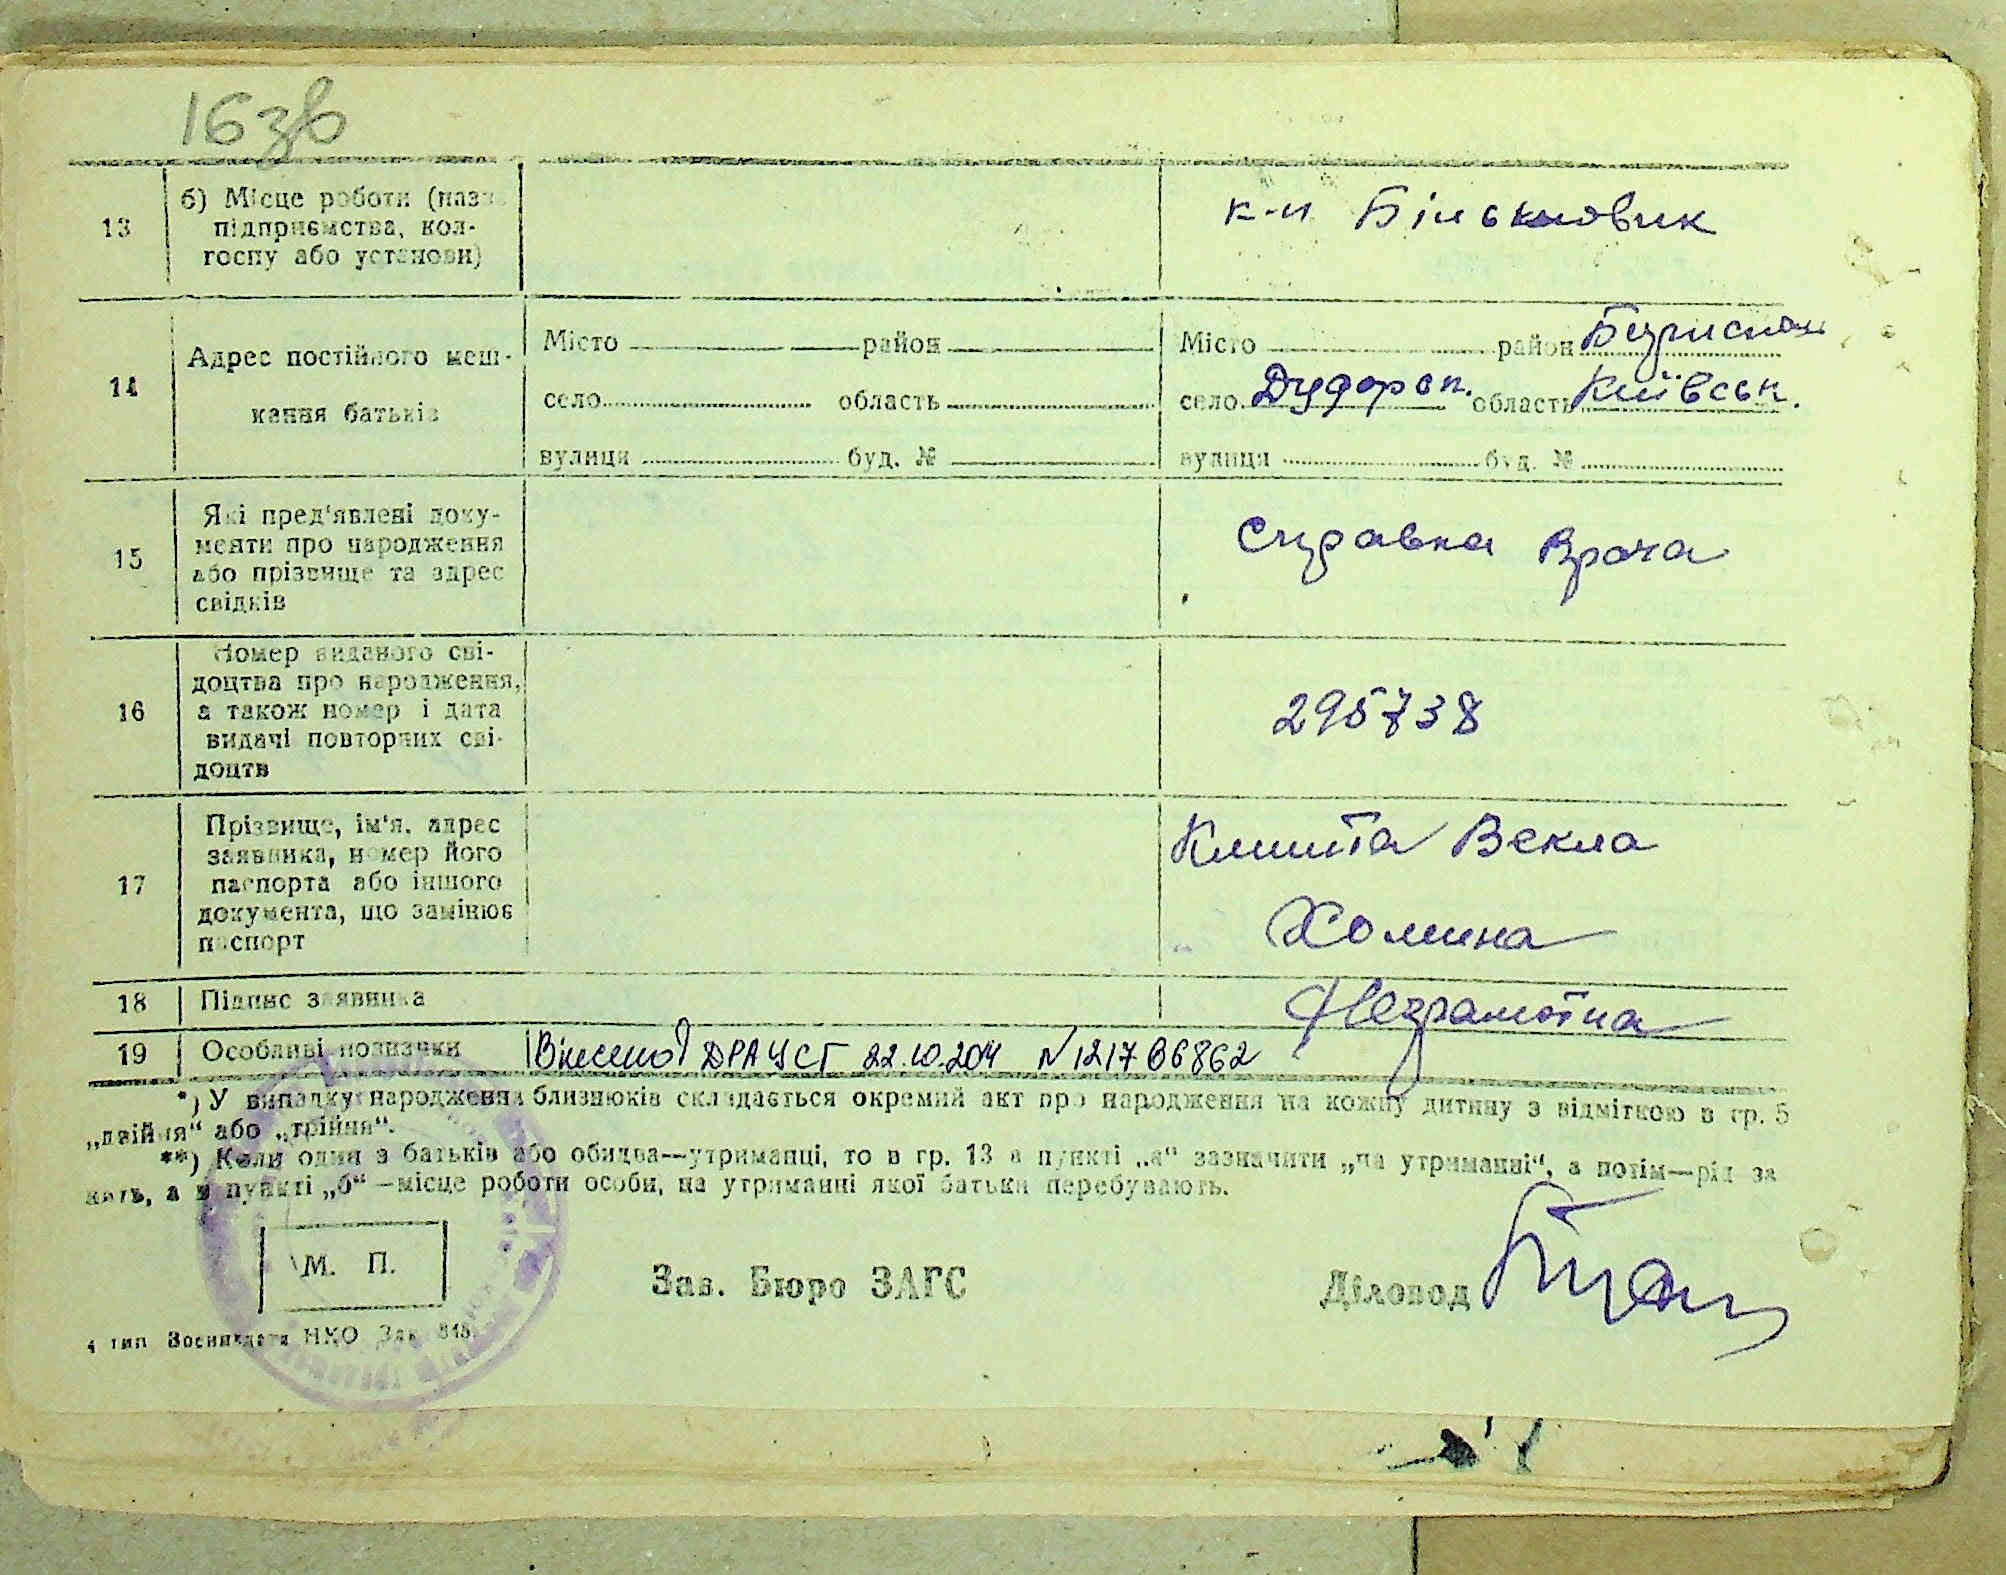 16зв
13 б) Місце роботи (назв
підприємства, кол-
госпу або установи)
к-п Більшовик
14 Адрес постійного меш-
кання батьків
Місто район Місто район Бориспол
село область село область Київськ.
вулиця буд. № вулиця буд. №
15 Які пред'явлені доку-
менти про народження
або прізвище та адрес
свідків
Справка врача
16 Номер виданого сві-
доцтва про народження,
а також номер і дата
видачі повторних сві-
доцтв
295738
17 Прізвище, ім'я, адрес
заявника, номер його
паспорта або іншого
документа, що замінює
паспорт
Векла
Хомина
18 Підпис заявника Неграмотна
19 Особливі позначки Внесено ДРАЦСГ 22.10. N 121786862
*) У випадку народження близнюків складається окремий акт про народження на кожну дитину з відміткою в гр. 5
„двійня“ або „трійня“.
**) Коли один з батьків або обидва—утриманці, то в гр. 13 в пункті „а“ зазначити „на утриманні“, а потім—рід за
нять, а в пункті „б“—місце роботи особи, на утриманні якої батьки перебувають.
М. П.
Зав. Бюро ЗАГС Діловод
4 тип НКО Зак